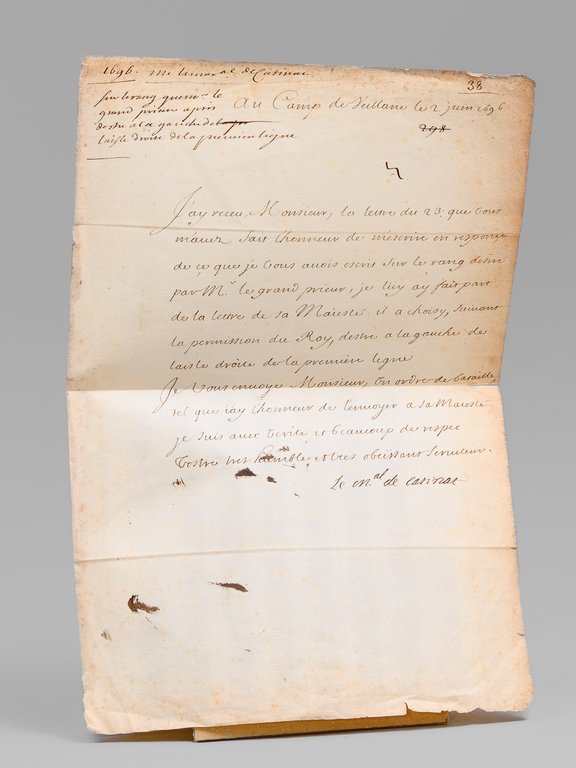 1696. Mr le maral de Catinat
38
sur le rang que Mr le
grand prieur a pris
destre a la gauche de
laisle droite de la premiere ligne
Au Camp de Veillane le 2 juin 1696
298
J'ay receu, Monsieur, la lettre du 23. que vous
m'auez fait lhonneur de m'escrire en response
de ce que je vous auois escrit sur le rang desiré
par Mr. le grand prieur, je luy ay fait part
de la lettre de sa Maiesté. il a choisy, suiuant
la permission du Roy, destre a la gauche de
laisle droite de la premiere ligne
Je vous enuoye Monsieur, un ordre de bataille,
tel que j'ay lhonneur de l'enuoyer a sa Maiesté.
je suis auec verité et beaucoup de respec
Vostre tres humble et tres obeissant seruiteur.
Le mal de Catinat